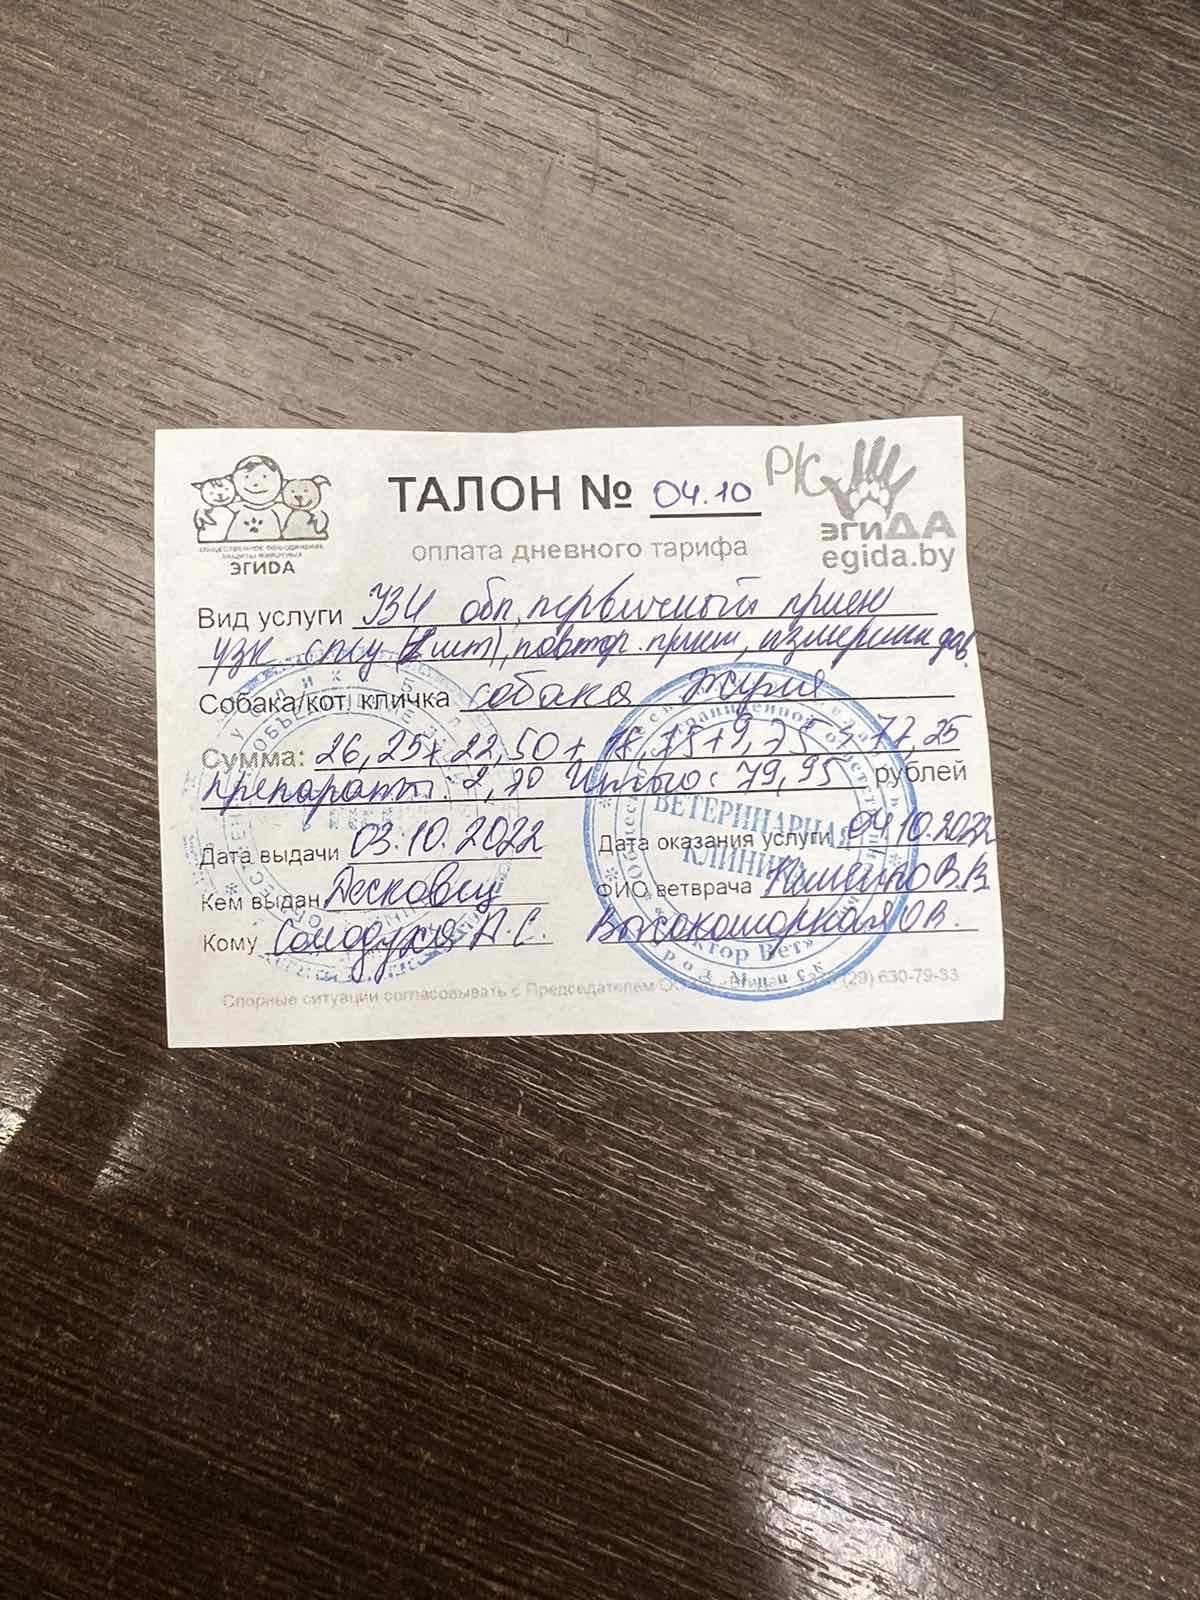 ТАЛОН № 04.10
РК
ОБЩЕСТВЕННОЕ ОБЪЕДИНЕНИЕ
ЗАЩИТЫ ЖИВОТНЫХ
ЭГИDA
эгиDA
egida.by
оплата дневного тарифа
Вид услуги УЗИ обп, первичный прием
узк. спку (1 шт), повтор. прием, измерение дав.
Собака/кот. кличка собака Жуля
Сумма: 26,25+ 22,50+ 18,75+9,75 = 77,25
препараты: 2,70 Итого: 79,95 рублей
Дата выдачи 03.10.2022
Дата оказания услуги 04.10.2022
Кем выдан Десковец
ФИО ветврача
Кому Солодуха А.С.
ВЕТЕРИНАРНАЯ
КЛИНИКА
«Доктор Вет»
город Минск
Спорные ситуации согласовывать с Председателем (29) 630-79-33